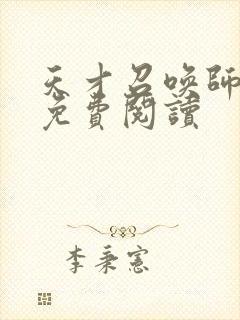 天才召喚師
免費閱讀
李秉憲